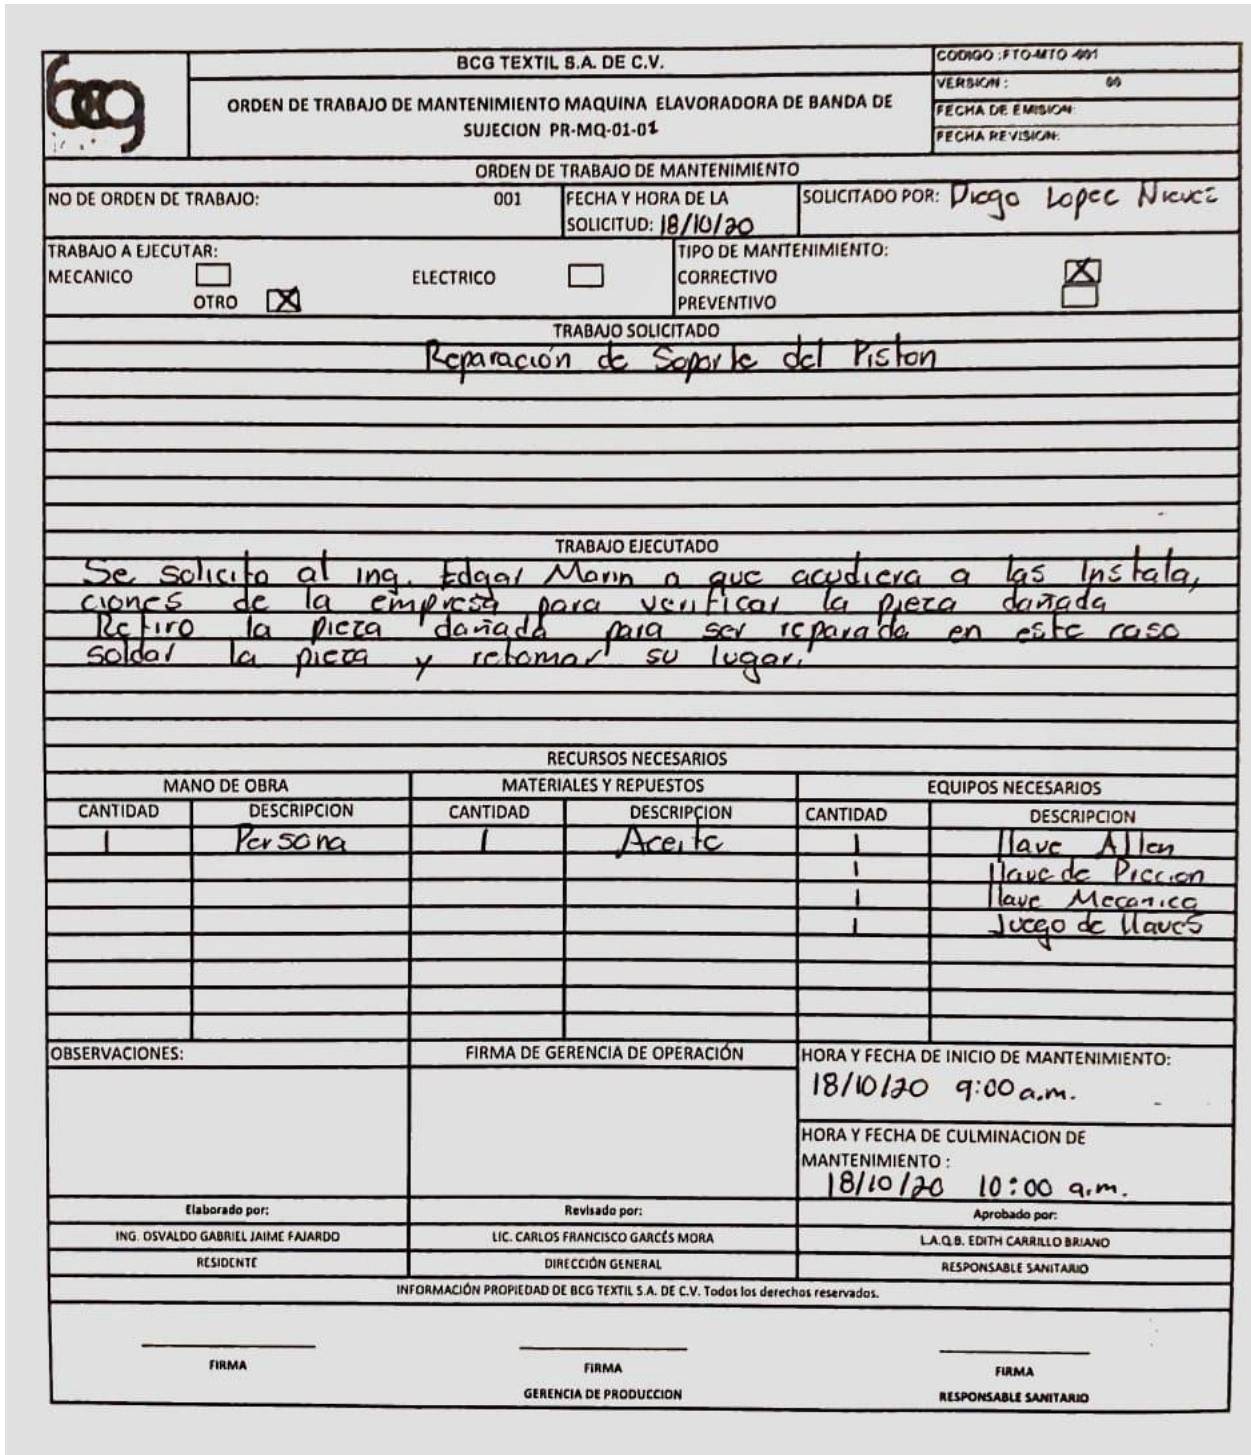 bcg
BCG TEXTIL S.A. DE C.V.
ORDEN DE TRABAJO DE MANTENIMIENTO MAQUINA ELAVORADORA DE BANDA DE
SUJECION PR-MQ-01-01
CODIGO :FTO-MTO -001
VERSION : 00
FECHA DE EMISION:
FECHA REVISION:
ORDEN DE TRABAJO DE MANTENIMIENTO
NO DE ORDEN DE TRABAJO: 001
FECHA Y HORA DE LA
SOLICITUD: 18/10/20
SOLICITADO POR: Diego Lopez Nievez
TRABAJO A EJECUTAR:
MECANICO ELECTRICO
OTRO X
TIPO DE MANTENIMIENTO:
CORRECTIVO X
PREVENTIVO
TRABAJO SOLICITADO
Reparación de Soporte del Piston
TRABAJO EJECUTADO
Se solicito al ing. Edgar Marin a que acudiera a las Instala,
ciones de la empresa para verificar la pieza dañada
Retiro la pieza dañada para ser reparada en este caso
soldar la pieza y retomar su lugar.
RECURSOS NECESARIOS
MANO DE OBRA MATERIALES Y REPUESTOS EQUIPOS NECESARIOS
CANTIDAD DESCRIPCION CANTIDAD DESCRIPCION CANTIDAD DESCRIPCION
1 Persona 1 Aceite 1 llave Allen
1 llave de Piccion
1 llave Mecanica
1 Juego de llaves
OBSERVACIONES:
FIRMA DE GERENCIA DE OPERACIÓN
HORA Y FECHA DE INICIO DE MANTENIMIENTO:
18/10/20 9:00 a.m.
HORA Y FECHA DE CULMINACION DE
MANTENIMIENTO :
18/10/20 10:00 a.m.
Elaborado por: Revisado por: Aprobado por:
ING. OSVALDO GABRIEL JAIME FAJARDO LIC. CARLOS FRANCISCO GARCÉS MORA L.A.Q.B. EDITH CARRILLO BRIANO
RESIDENTE DIRECCIÓN GENERAL RESPONSABLE SANITARIO
INFORMACIÓN PROPIEDAD DE BCG TEXTIL S.A. DE C.V. Todos los derechos reservados.
FIRMA FIRMA FIRMA
GERENCIA DE PRODUCCION RESPONSABLE SANITARIO